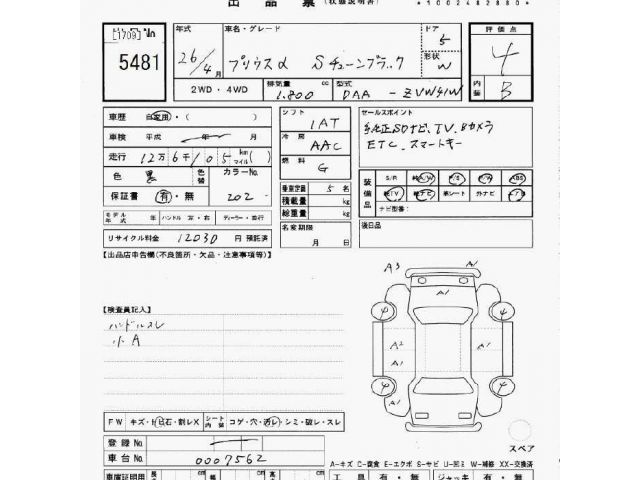 出品票(状態説明書)
*1002482880*
[1709] No
5481
年式 車名・グレード ドア 評価点
26/4月 プリウスα Sチューンブラック 5 4
形状 W
2WD・4WD 排気量 1.800 cc 型式 DAA - ZVW41W 内装 B
車歴 自家用・( )
シフト 1AT
セールスポイント
純正SDナビ、TV、Bカメラ
ETC、スマートキー
車検 平成 年 月
冷房 AAC
走行 12万6千105 km マイル( )
燃料 G
色 黒 色替 カラーNo. 202
乗車定員 5名
装備品 S/R 純A/W P/S P/W ABS
純TV 純ナビ 革シート 外ナビ エアB
ナビ型番:
保証書 有・無
積載量 kg
総重量 kg
モデル年式 年 ハンドル 左・右 ディーラー・並行
名変期限
月 日
後日品
リサイクル料金 12030 円 預託済
【出品店申告欄(不良箇所・欠品・注意事項等)】
A3 A1
A1
【検査員記入】
ハンドルスレ
小A
A2 A1
A1
FW キズ・トビ石・割レX シート内装 コゲ・穴・汚レ・シミ・破レ・スレ
A1
登録No.
スペア
車台No. 0007562
A-キズ C-腐食 E-エクボ S-サビ U-凹ミ W-補修 XX-交換済
車庫証明用 長 cm 幅 cm 高 cm 工具 有・無 ジャッキ 有・無